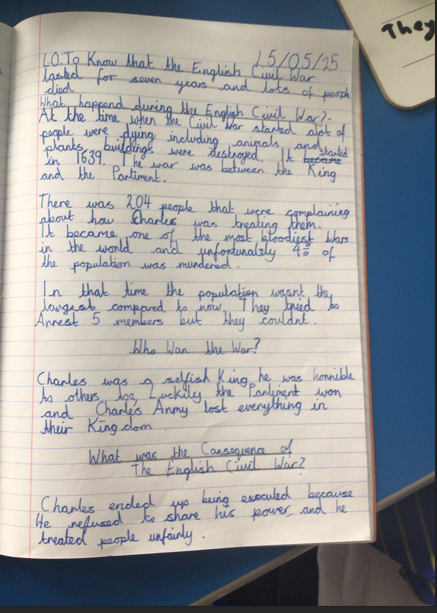 They
15/05/25
L.O: To Know that the English Civil War
lasted for seven years and lots of people
died
What happend during the English Civil War?.
At the time when the Civil War started alot of
people were dying including animals and
plants, buildings were destroyed. It became started
in 1639. The war was between the King
and the Parliment.
There was 204 people that were complaining
about how Charles was treating them.
It became one of the most bloodiest Wars
in the world and unfortunatly 4% of
the population was murdered.
In that time the population wasnt the
largest compared to now. They tried to
Arrest 5 members but they couldnt.
Who Won the War?
Charles was a selfish King, he was horrible
to others too, Luckily the Parliment won
and Charles Army lost everything in
their Kingdom.
What was the Consequence of
The English Civil War?
Charles ended up being executed because
He refused to share his power, and he
treated people unfairly.